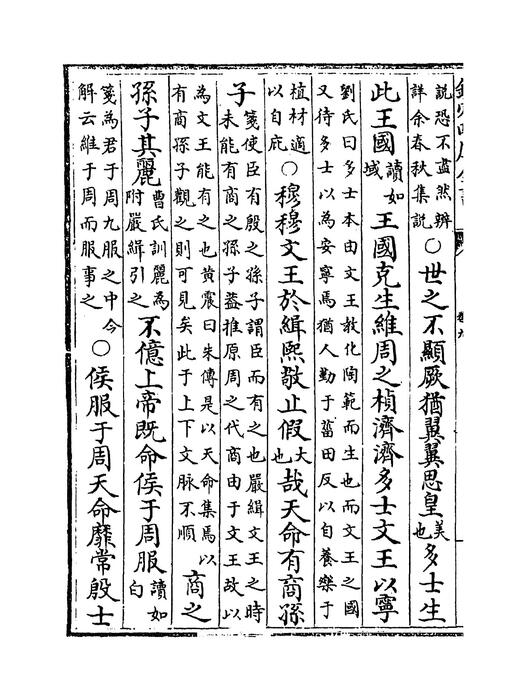 說恐不盡然辨
詳余春秋集說
○世之不顯厥猶翼翼思皇美也多士生
此王國讀如域王國克生維周之楨濟濟多士文王以寧
劉氏曰多士本由文王教化陶範而生也而文王之國
又待多士以為安寧焉猶人勤于菑田反以自養樂于
植材適
以自庇
○穆穆文王於緝熙敬止假大也哉天命有商孫
子
箋使臣有殷之孫子謂臣而有之也嚴緝文王之時
未能有商之孫子蓋推原周之代商由于文王故以
為文王能有之也黄震曰朱傳是以天命集焉以
有商孫子觀之則可見矣此于上下文脉不順
商之
孫子其麗
曹氏訓麗為
附嚴緝引之
不億上帝既命侯于周服讀如白
箋為君于周九服之中今
解云維于周而服事之
○侯服于周天命靡常殷士